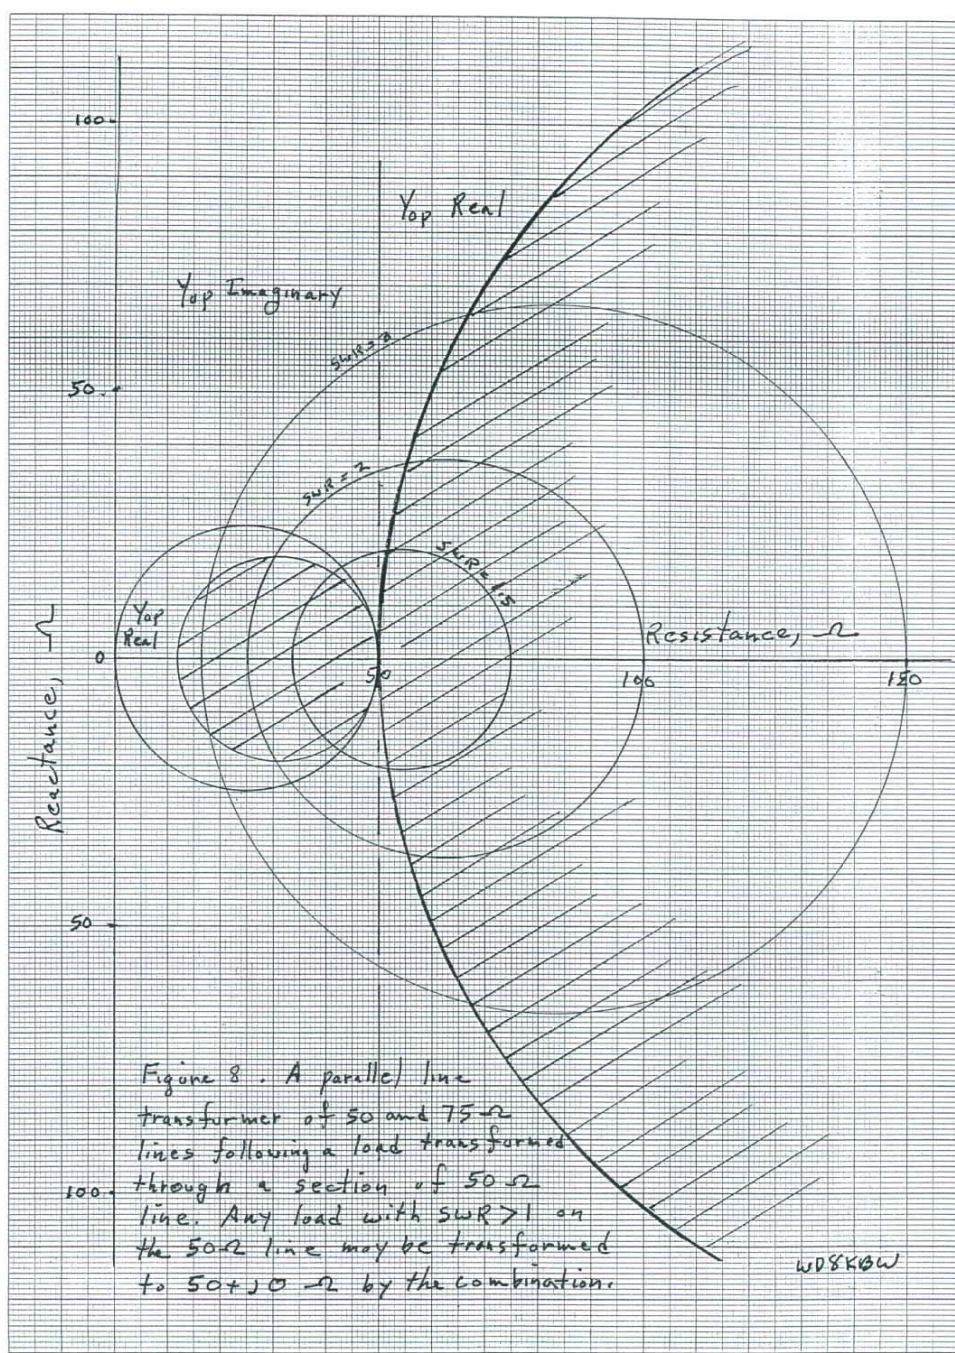 100
Yop Real
Yop Imaginary
SWR = 3
50
SWR = 2
SWR = 1.5
Yop
Real
Reactance, Ω
0
50
Resistance, Ω
100
150
50
100
Figure 8. A parallel line
transformer of 50 and 75 Ω
lines following a load transformed
through a section of 50 Ω
line. Any load with SWR > 1 on
the 50 Ω line may be transformed
to 50 + j0 Ω by the combination.
WD8KBW